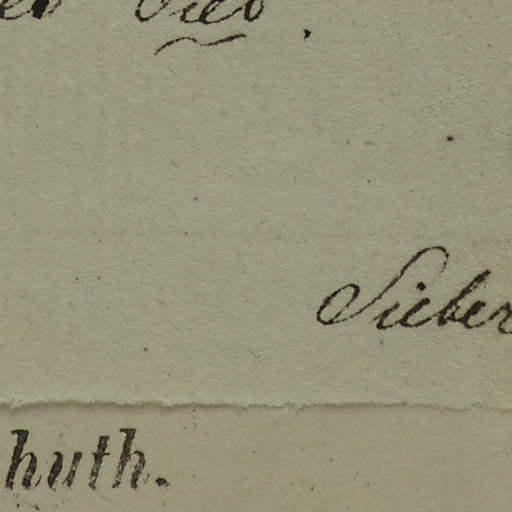 Sieber
huth.